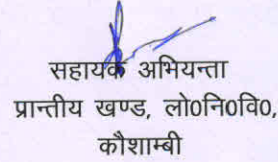 सहायक अभियन्ता
प्रान्तीय खण्ड, लो0नि0वि0,
कौशाम्बी